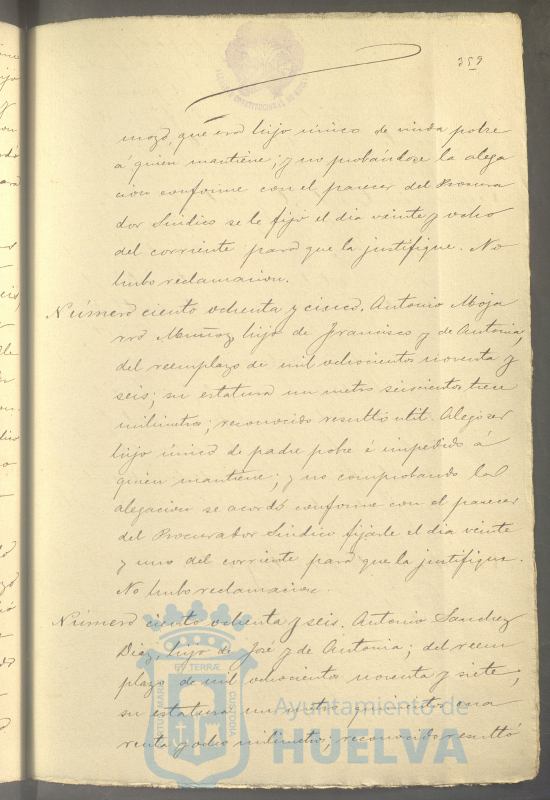 359
mozo, que era hijo único de viuda pobre
á quien mantiene; y no probándose la alega
cion conforme con el parecer del Procura
dor Síndico se le fijó el dia veinte y ocho
del corriente para que la justifique. No
hubo reclamacion.
Número ciento ochenta y cinco. Antonio Moja
rro Muñoz, hijo de Francisco y de Antonia,
del reemplazo de mil ochocientos noventa y
seis; su estatura un metro seiscientos trece
milimetros; reconocido resultó util. Alegó ser
hijo único de padre pobre é impedido á
quien mantiene; y no comprobando la
alegacion se acordó conforme con el parecer
del Procurador Síndico fijarle el dia veinte
y uno del corriente para que la justifique.
No hubo reclamacion.
Número ciento ochenta y seis. Antonio Sanchez
Diez, hijo de José y de Antonia; del reem
plazo de mil ochocientos noventa y siete;
su estatura un metro quinientos cua
renta y ocho milimetros; reconocido resultó
Ayuntamiento de
HUELVA
PORTUS MARIS
ET TERRÆ
CUSTODIA